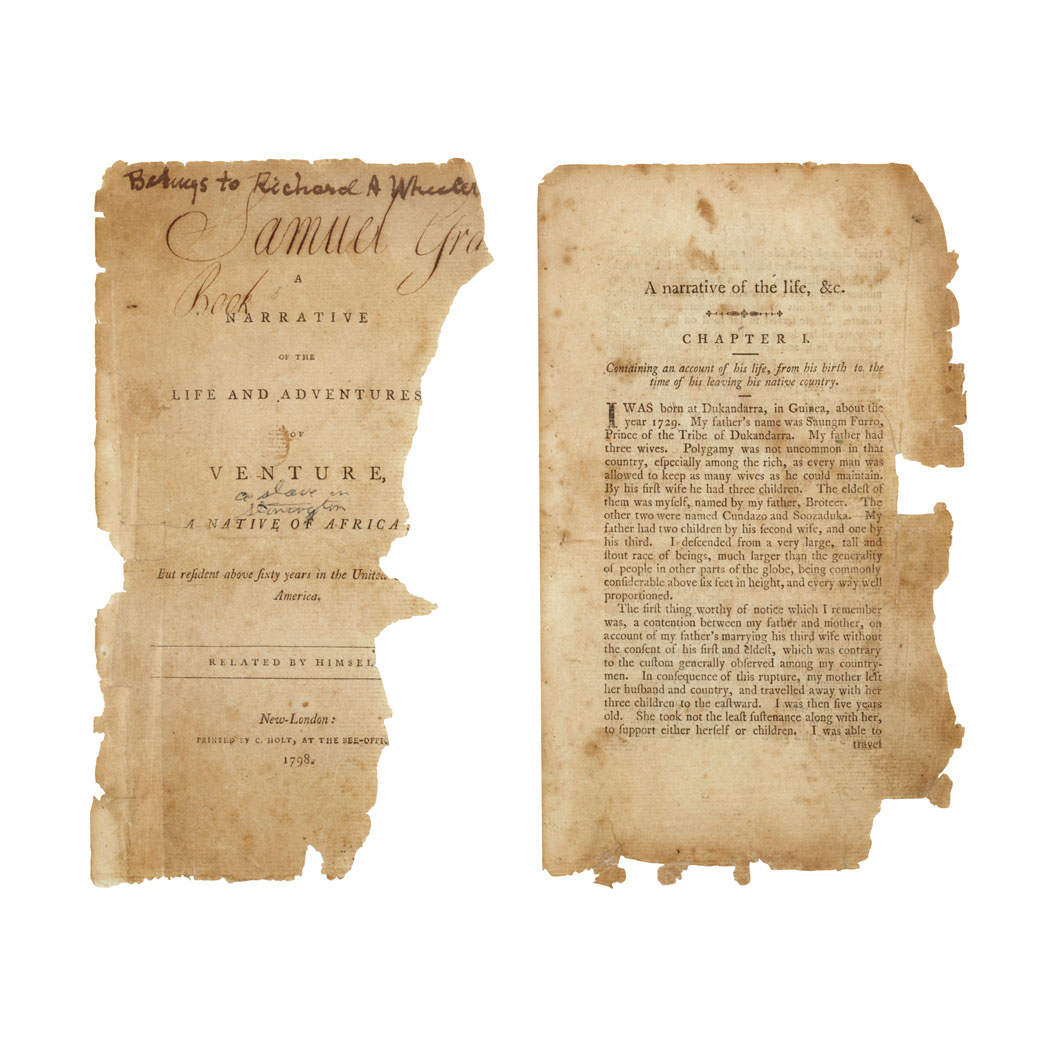 Belongs to Richard A Wheeler
Samuel Gra
Book
A
NARRATIVE
OF THE
LIFE AND ADVENTURES
OF
VENTURE,
a slave in
Stonington
A NATIVE OF AFRICA:
But reſident above ſixty years in the United
America.
RELATED BY HIMSEL
New-London:
PRINTED BY C. HOLT, AT THE BEE-OFFIC
1798.
A narrative of the life, &c.
CHAPTER I.
Containing an account of his life, from his birth to the
time of his leaving his native country.
I WAS born at Dukandarra, in Guinea, about the
year 1729. My father's name was Saungm Furro,
Prince of the Tribe of Dukandarra. My father had
three wives. Polygamy was not uncommon in that
country, eſpecially among the rich, as every man was
allowed to keep as many wives as he could maintain.
By his firſt wife he had three children. The eldeſt of
them was myſelf, named by my father, Broteer. The
other two were named Cundazo and Soozaduka. My
father had two children by his second wife, and one by
his third. I deſcended from a very large, tall and
ſtout race of beings, much larger than the generality
of people in other parts of the globe, being commonly
conſiderable above ſix feet in height, and every way well
proportioned.
The firſt thing worthy of notice which I remember
was, a contention between my father and mother, on
account of my father's marrying his third wife without
the conſent of his firſt and eldeſt, which was contrary
to the cuſtom generally obſerved among my country-
men. In conſequence of this rupture, my mother left
her huſband and country, and travelled away with her
three children to the eaſtward. I was then five years
old. She took not the leaſt ſuſtenance along with her,
to ſupport either herſelf or children. I was able to
travel